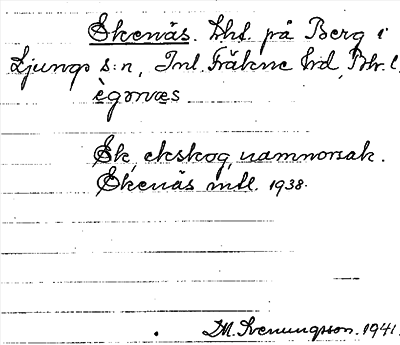 Ekenäs. Lht. på Berg i
Ljungs s:n, Inl. Fräkne hd, Bhr. l.
ègənæs
Ek, ekskog, namnorsak.
Ekenäs mtl. 1938.
M. Svenungsson. 1941.